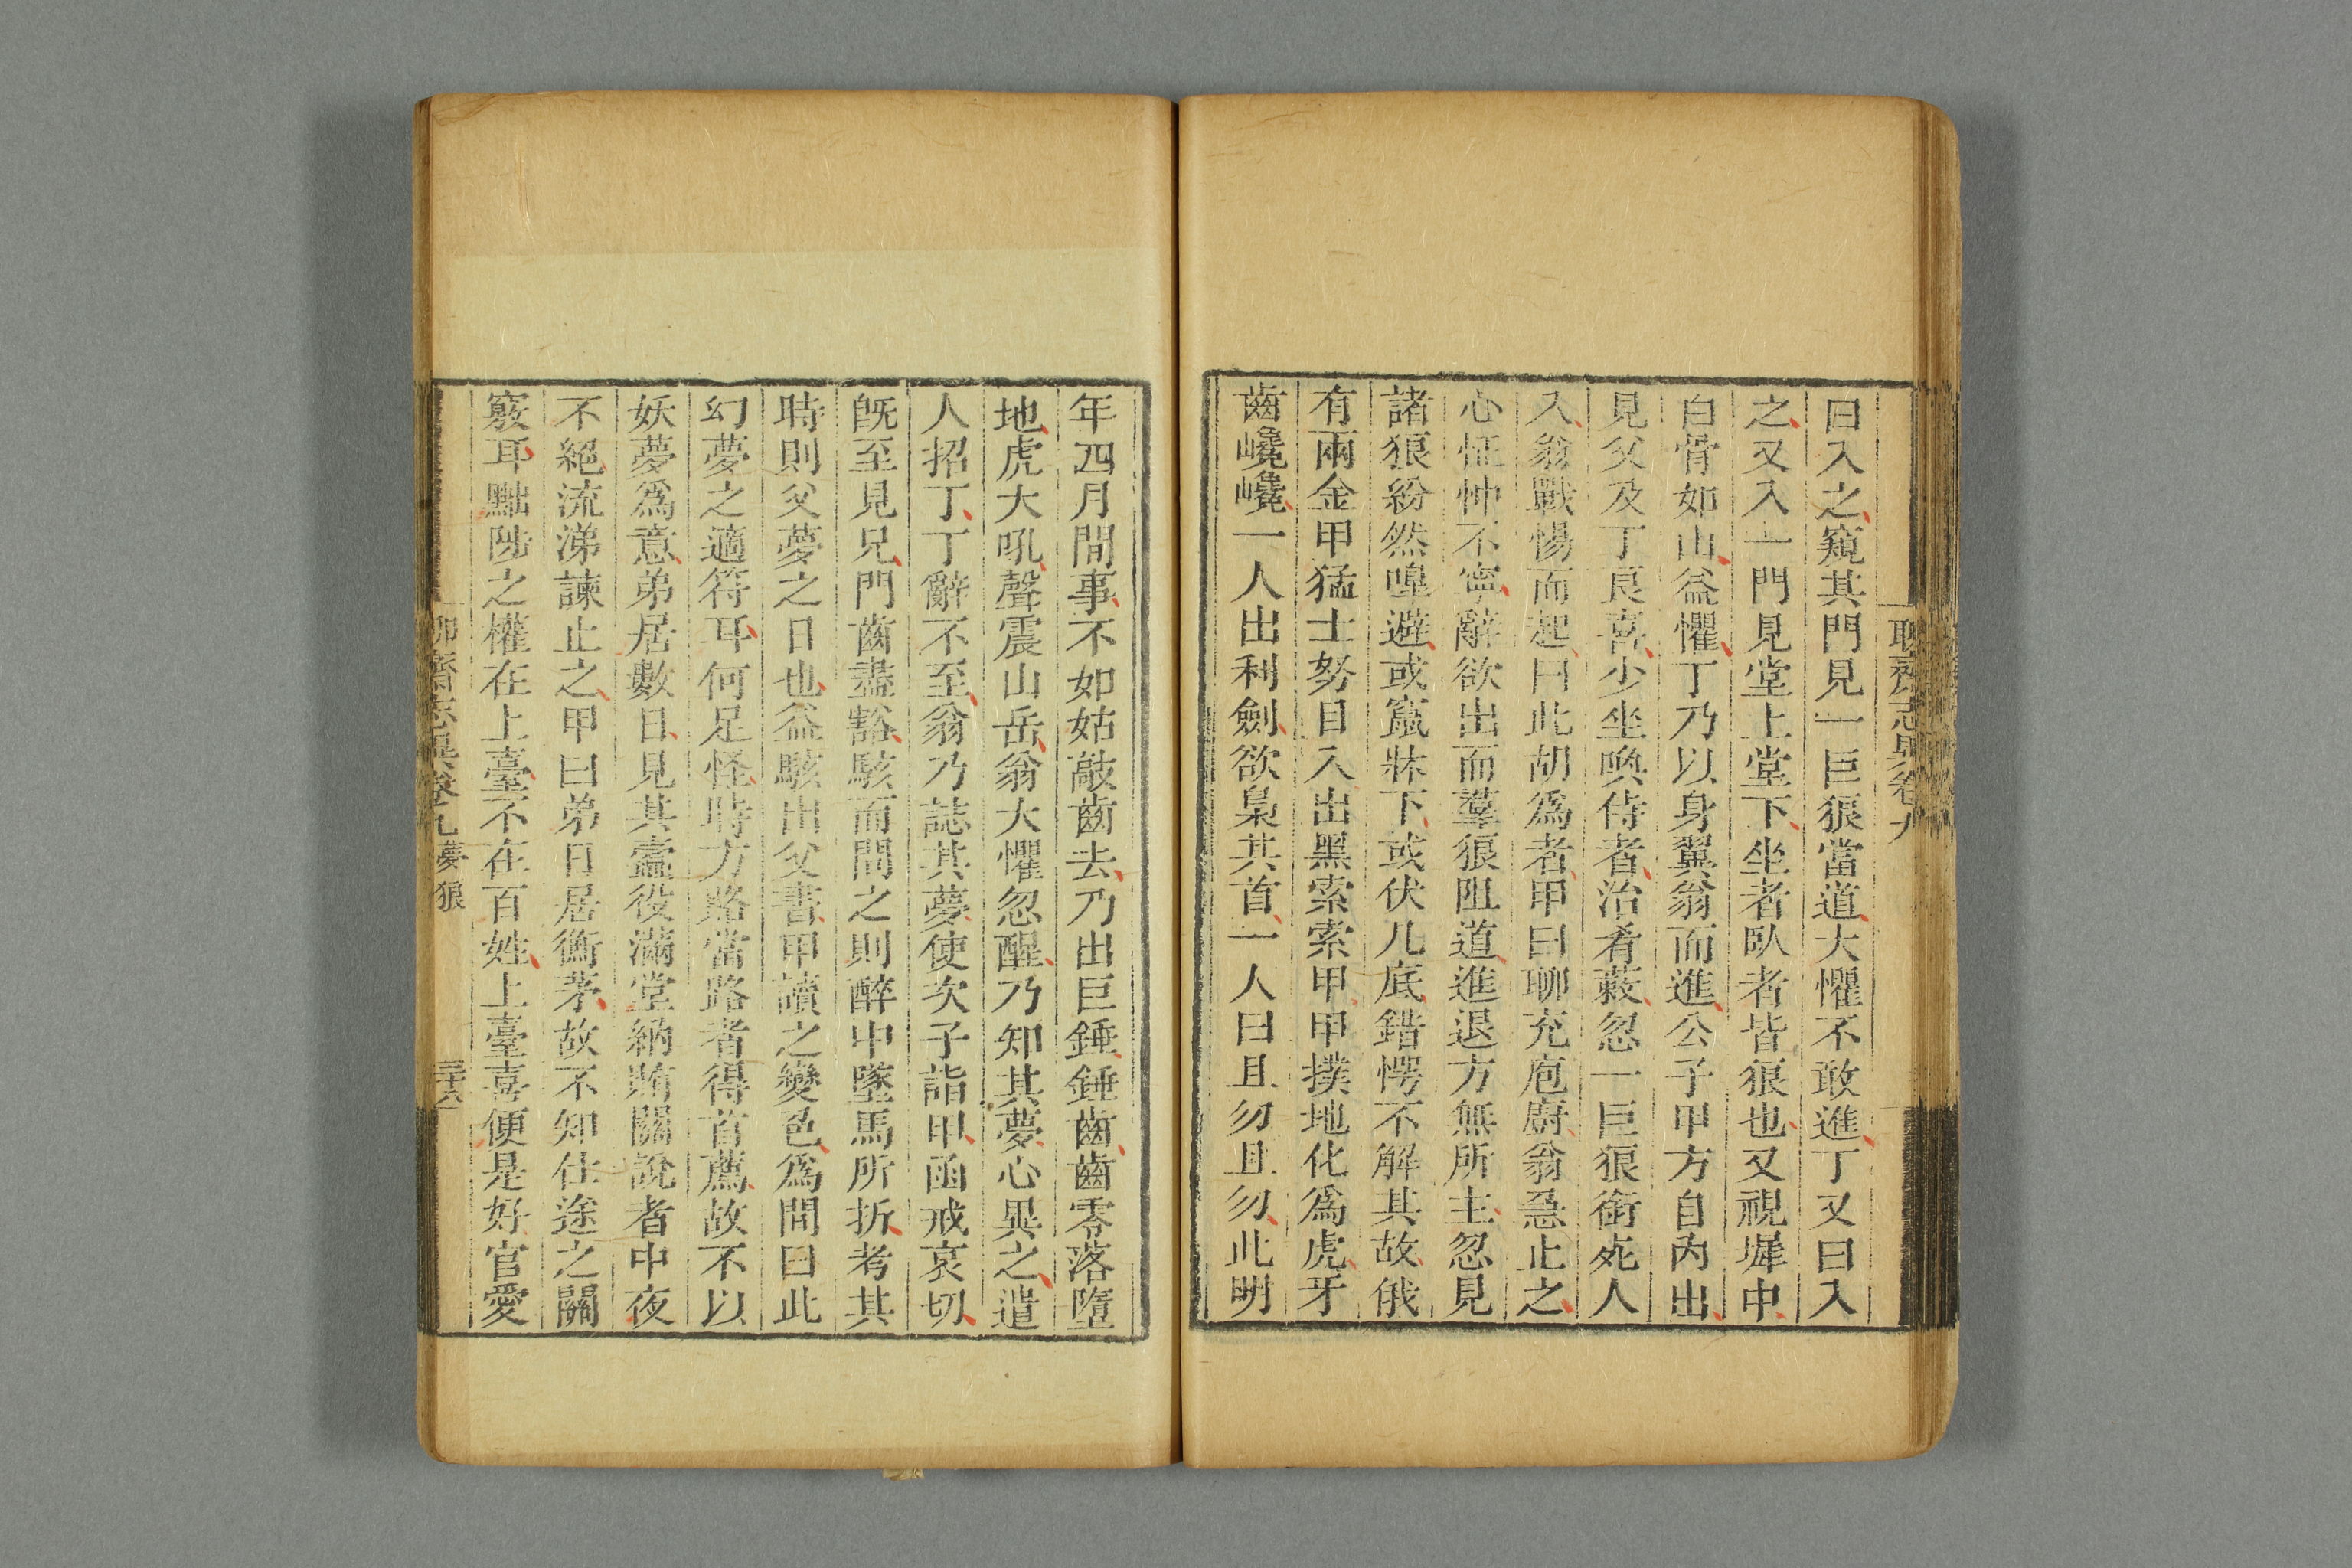 聊齋志異卷九
曰入之窺其門見一巨狼當道大懼不敢進丁又曰入
之又入一門見堂上堂下坐者臥者皆狼也又視墀中
白骨如山益懼丁乃以身翼翁而進公子甲方自內出
見父及丁良喜少坐喚侍者治肴蔌忽一巨狼銜死人
入翁戰惕而起曰此胡爲者甲曰聊充庖廚翁急止之
心怔忡不寧辭欲出而羣狼阻道進退方無所主忽見
諸狼紛然嘷避或竄牀下或伏几底錯愕不解其故俄
有兩金甲猛士努目入出黑索索甲甲撲地化爲虎牙
齒巉巉一人出利劍欲梟其首一人曰且勿且勿此明
年四月間事不如姑敲齒去乃出巨錘錘齒齒零落墮
地虎大吼聲震山岳翁大懼忽醒乃知其夢心異之遣
人招丁丁辭不至翁乃誌其夢使次子詣甲函戒哀切
旣至見兄門齒盡豁駭而問之則醉中墜馬所折考其
時則父夢之日也益駭出父書甲讀之變色爲間曰此
幻夢之適符耳何足怪時方賂當路者得首薦故不以
妖夢爲意弟居數日見其蠹役滿堂納賄關說者中夜
不絕流涕諫止之甲曰弟日居衡茅故不知仕途之關
竅耳黜陟之權在上臺不在百姓上臺喜便是好官愛
聊齋志異卷九 夢狼 三十六